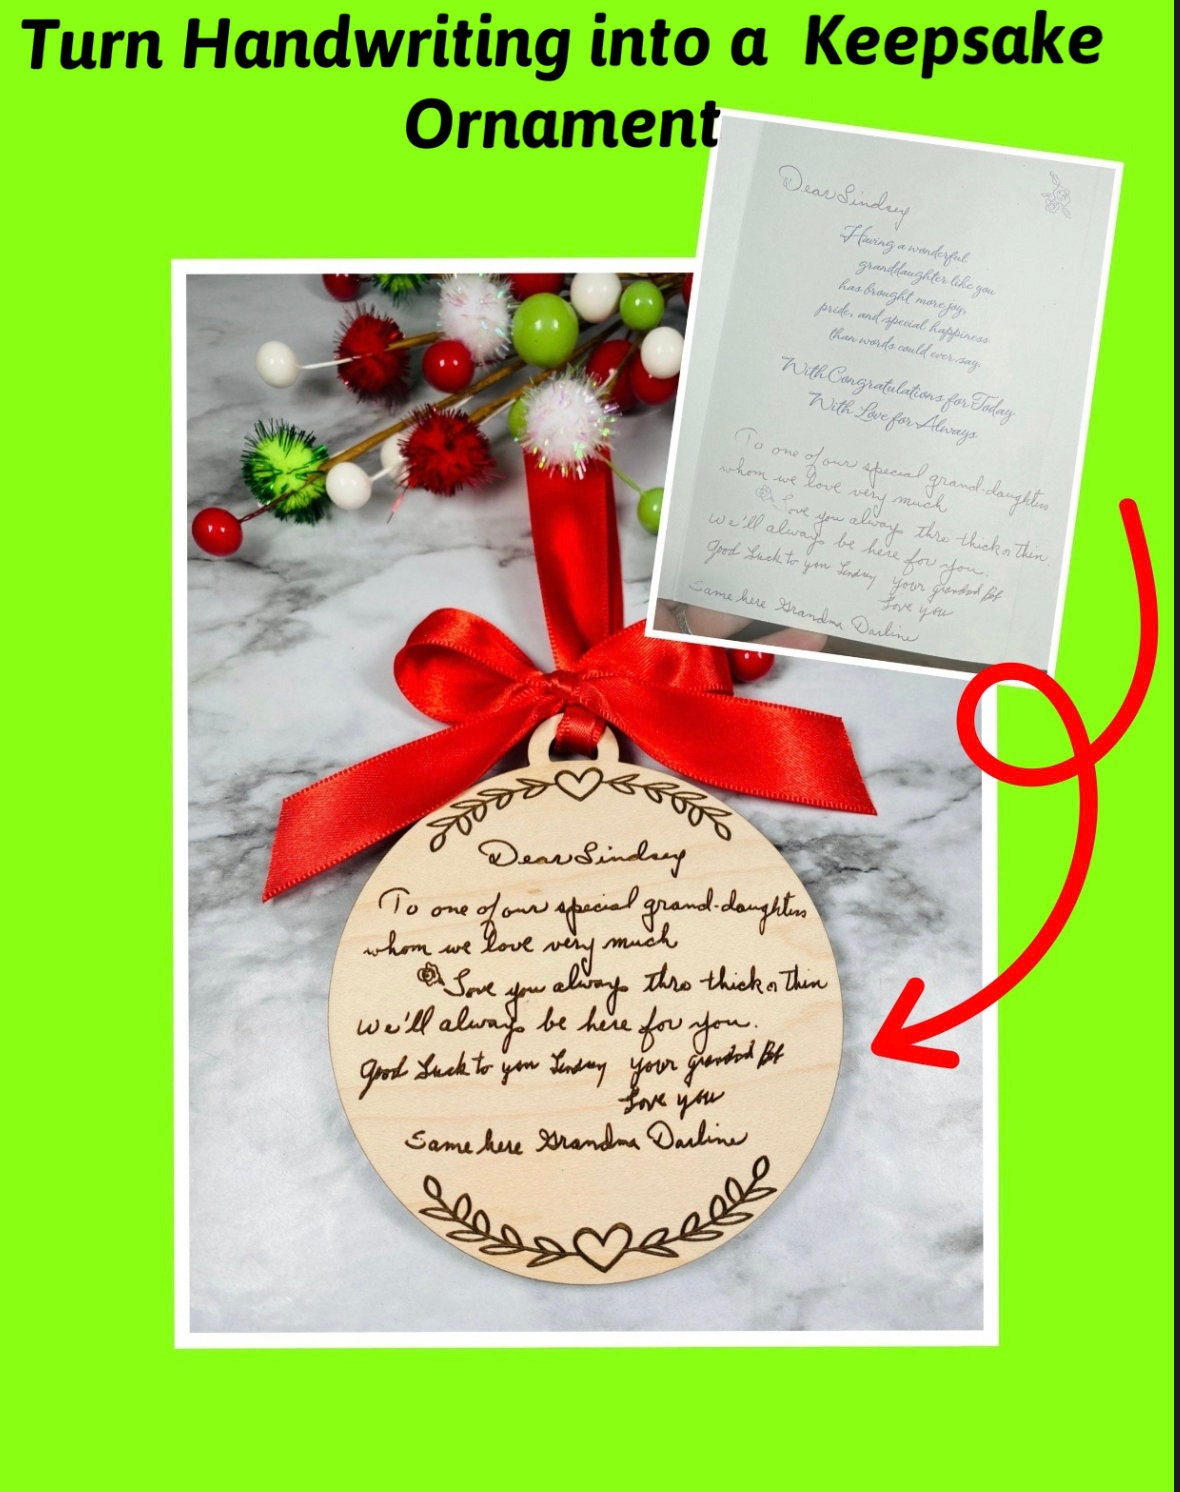 Turn Handwriting into a Keepsake
Ornament
Dear Lindsey
Having a wonderful
granddaughter like you
has brought more joy,
pride, and special happiness
than words could ever say.
With Congratulations for Today
With Love for Always
To one of our special grand-daughters
whom we love very much
Love you always thro thick or thin
we'll always be here for you.
Good Luck to you Lindsey your grandad
Love you
Same here Grandma Darline
Dear Lindsey
To one of our special grand-daughters
whom we love very much
Love you always thro thick or thin
we'll always be here for you.
Good Luck to you Lindsey your grandad
Love you
Same here Grandma Darline